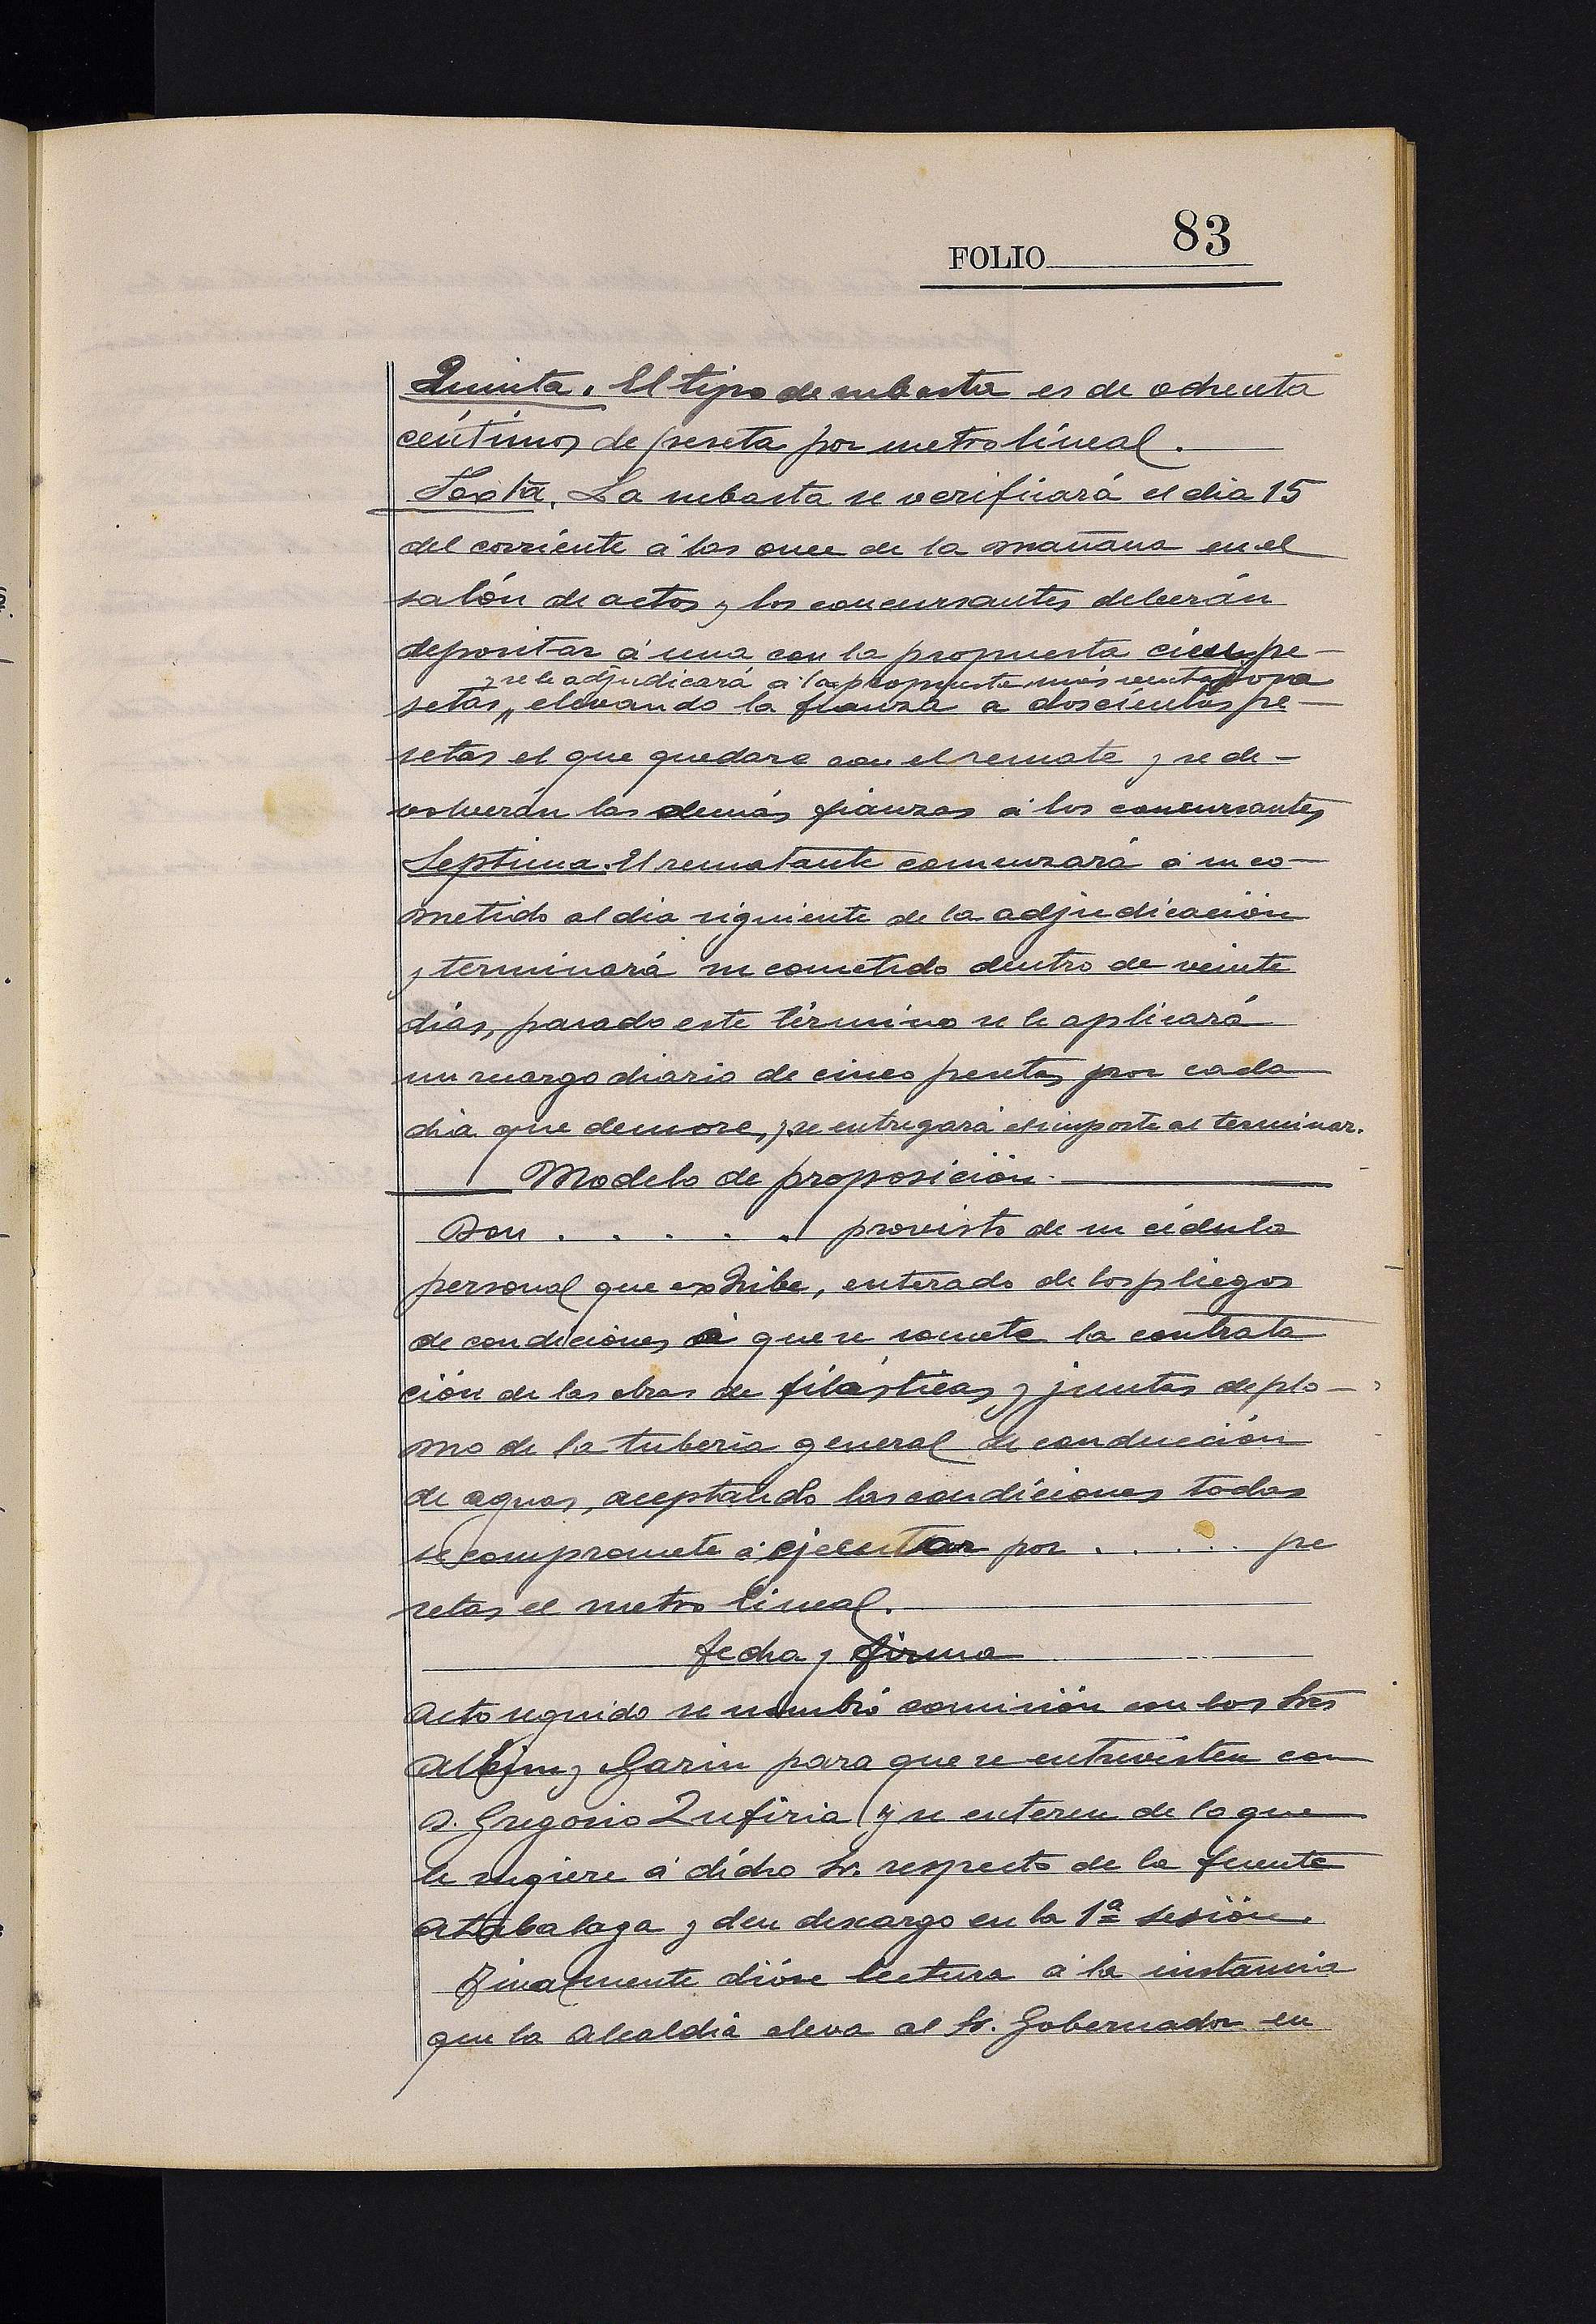 FOLIO 83
Quinta. El tipo de subasta es de ochenta
céntimos de peseta por metro lineal.
Sexta. La subasta se verificará el dia 15
del corriente á las once de la mañana en el
salón de actos y los concursantes deberán
depositar á una con la propuesta cien pe-
y se le adjudicará á la propuesta más ventajosa
setas, elevando la fianza a doscientas pe-
setas el que quedara con el remate y se de-
volverán las demás fianzas á los concursantes
Septima. El rematante comenzará á su co-
metido al dia siguiente de la adjudicación
y terminará su cometido dentro de veinte
dias, pasado este término se le aplicará
un recargo diario de cinco pesetas por cada
dia que demore, y se entregará el importe al terminar.
Modelo de proposición
Don . . . . . provisto de su cédula
personal que exhibe, enterado de los pliegos
de condiciones á que se somete la contrata
ción de las obras de filásticas y juntas de plo-
mo de la tuberia general de conducción
de aguas, aceptando las condiciones todas
se compromete á ejecutar por . . . . . pe
setas el metro lineal.
fecha y firma
Acto seguido se nombró comisión con los Sres
y Garin para que se entrevisten con
D. Gregorio Zufiria y se enteren de lo que
le sugiere á dicho Sr. respecto de la fuente
Atabalaga y den descargo en la 1ª sesión.
Finalmente dióse lectura á la instancia
que la Alcaldia eleva al Sr. Gobernador en